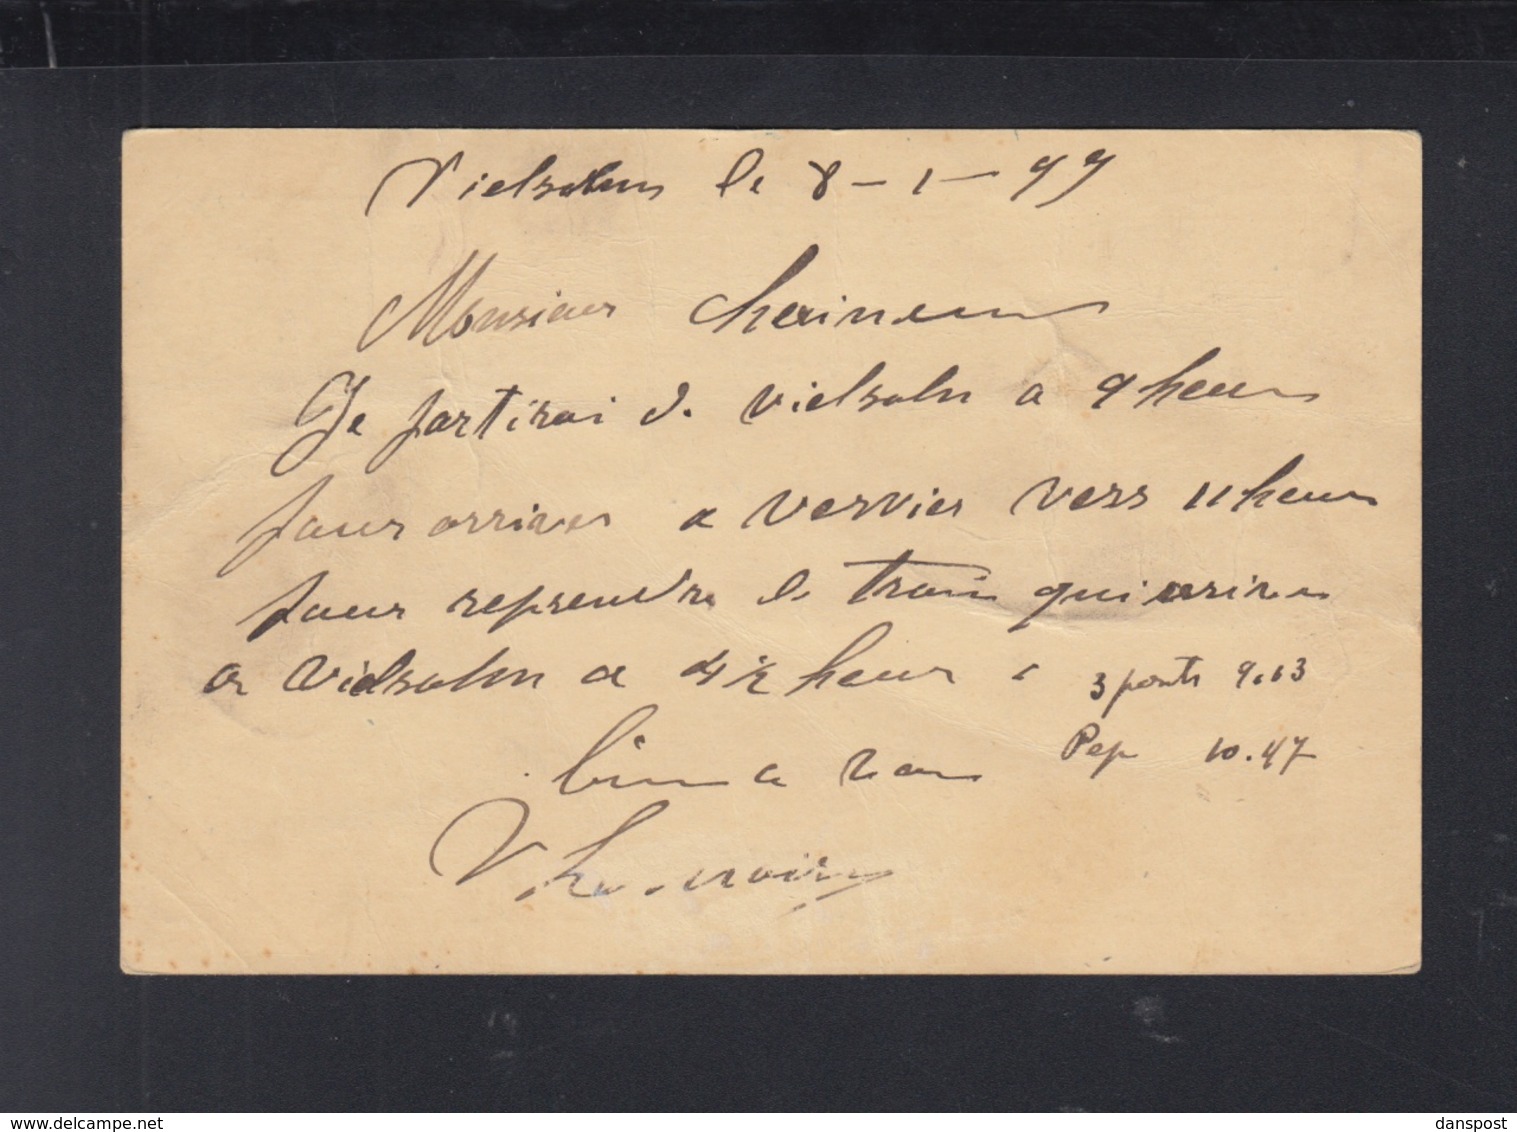 Vielsalm le 8-1-99
Monsieur
Je partirai de vielsalm a 9 heur
pour arriver a verviers vers 11 heur
pour reprendre le train qui arrive
a Vielsalm a 4 1/2 heur
3 ponts 9.13
Pep 10.47
bien a vous
www.delcampe.net
danspost